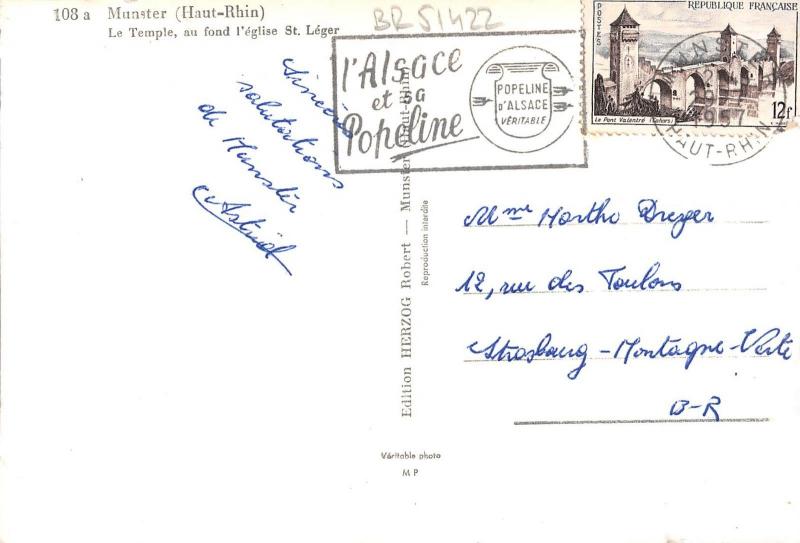 108 a Munster (Haut-Rhin)
Le Temple, au fond l'église St. Léger
BR51422
l'Alsace
et sa
Popeline
POPELINE
D'ALSACE
VÉRITABLE
POSTES
RÉPUBLIQUE FRANÇAISE
Le Pont Valentré (Cahors)
12f
MUNSTER
1957
HAUT-RHIN
Sincères
salutations
de Munster
Mme Marthe Dreyer
12, rue des Toulons
Strasbourg-Montagne-Verte
B-R
Edition HERZOG Robert — Munster (Haut-Rhin)
Reproduction interdite
Véritable photo
M P